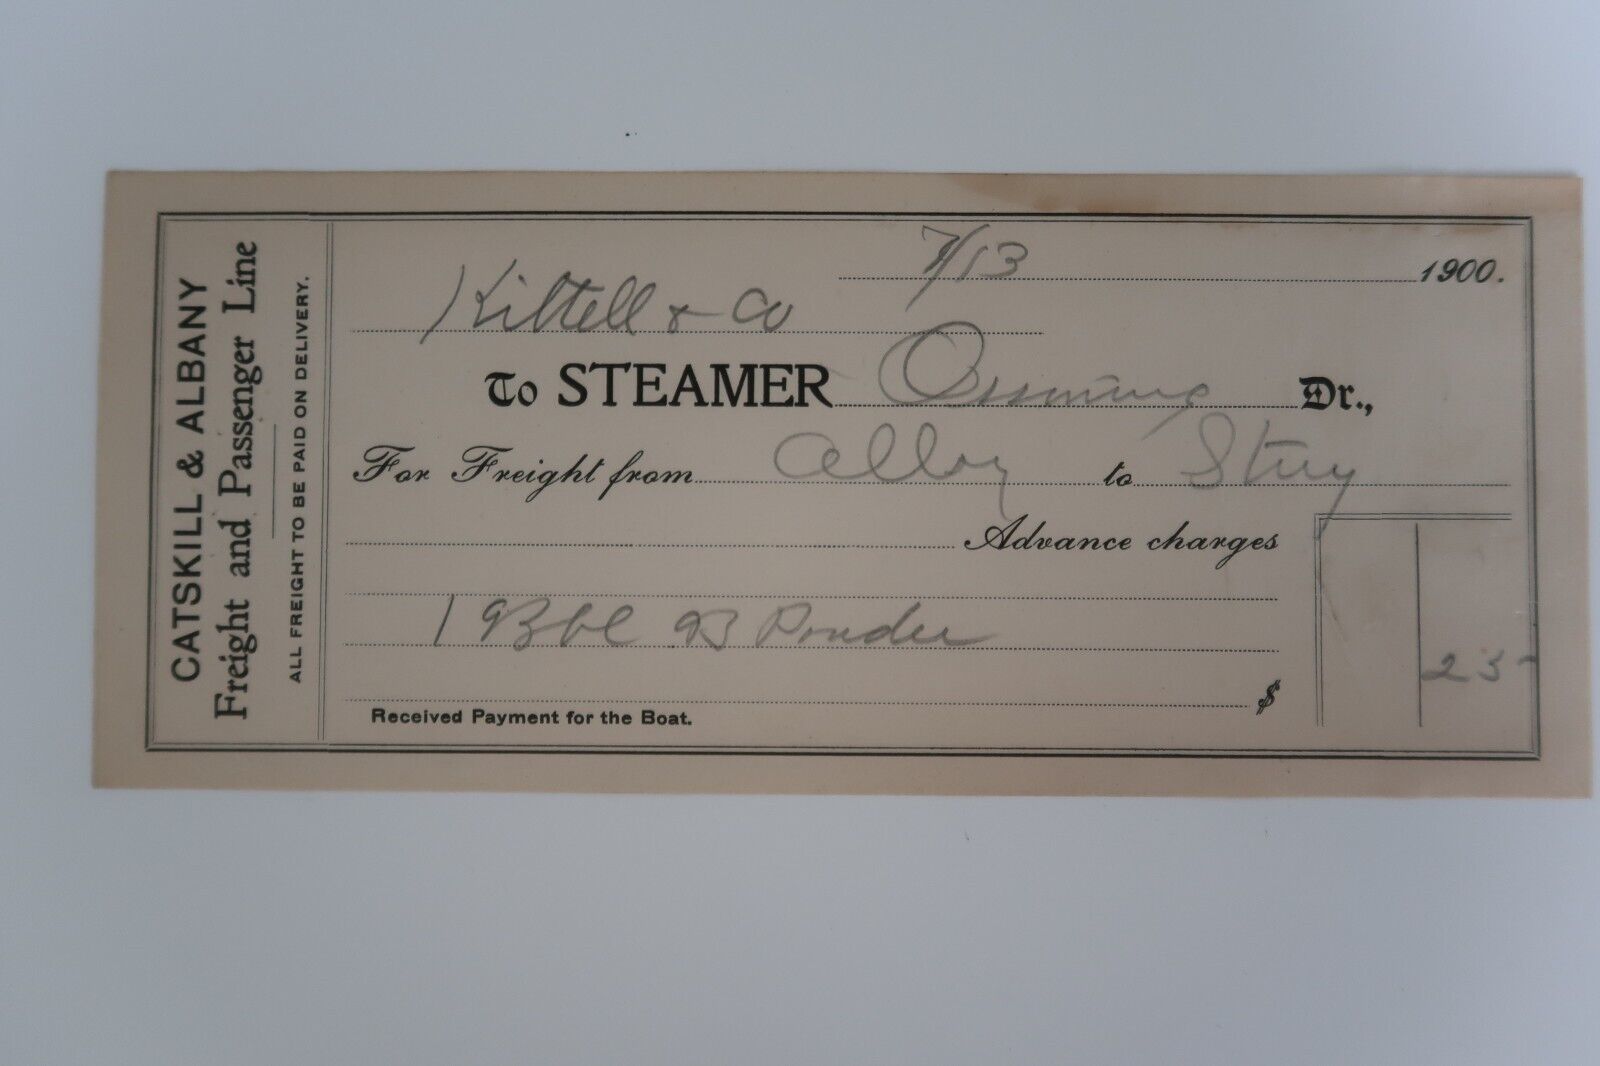 CATSKILL & ALBANY
Freight and Passenger Line
ALL FREIGHT TO BE PAID ON DELIVERY.
7/13 1900.
Kittell & Co
To STEAMER Ossining Dr.,
For Freight from Alby to Stuy
Advance charges
1 Bbl B Powder
$ 25
Received Payment for the Boat.